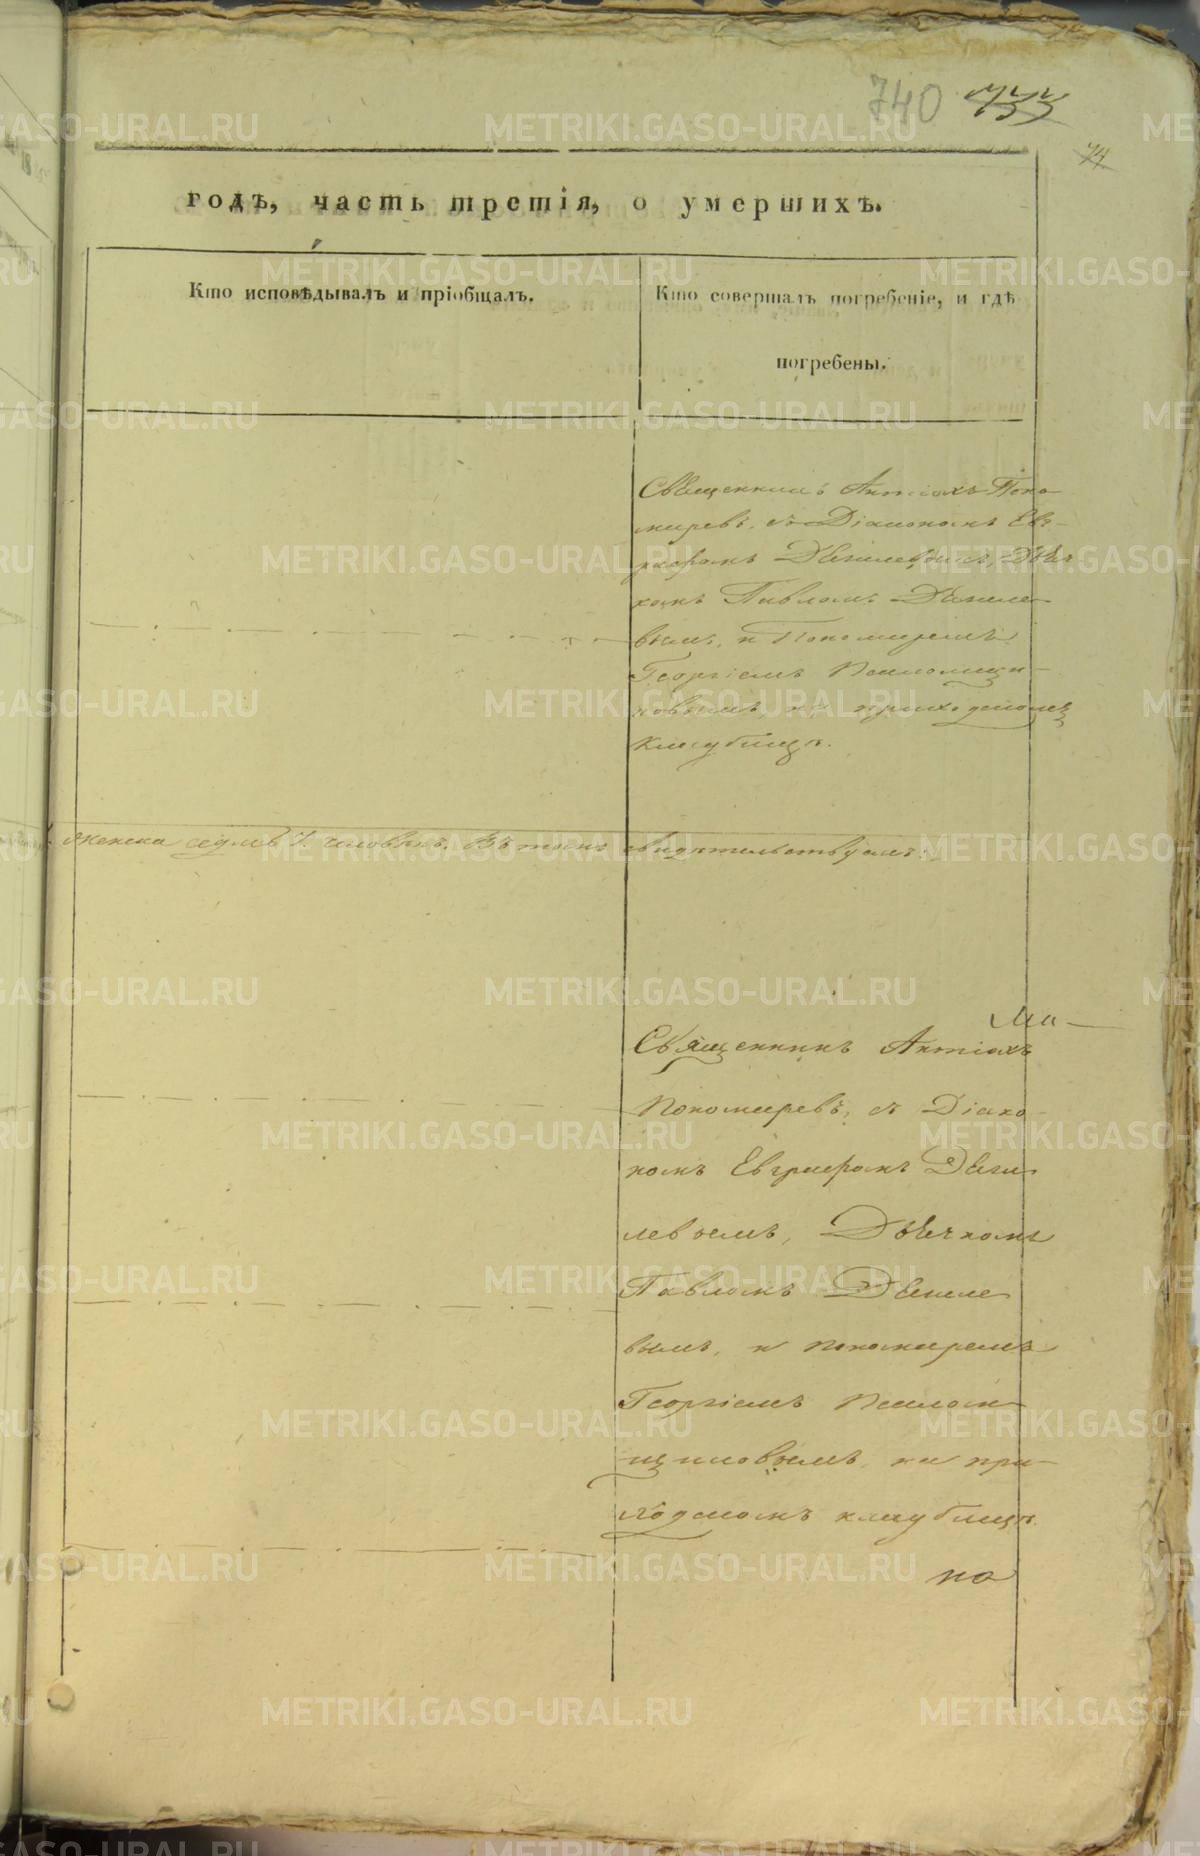 740 733
74
годѣ, часть третія, о умершихъ.
Кто исповѣдывалъ и пріобщалъ.
Кто совершалъ погребеніе, и гдѣ
погребены.
Священникъ Антіохъ Поно-
маревъ, съ Діакономъ Ев-
графомъ Дягилевымъ, Дьяч-
комъ Павломъ Дягиле-
вымъ, и Пономаремъ
Георгіемъ
на приходскомъ
кладбищѣ.
женска седмь 7. человѣкъ. Въ томъ свидѣтельствуемъ:
Ма-
Священникъ Антіохъ
Пономаревъ, съ Діако-
номъ Евграфомъ Дяги-
левымъ, Дьячкомъ
Павломъ Дягиле-
вымъ, и пономаремъ
Георгіемъ
на при-
ходскомъ кладбищѣ.
по
METRIKI.GASO-URAL.RU